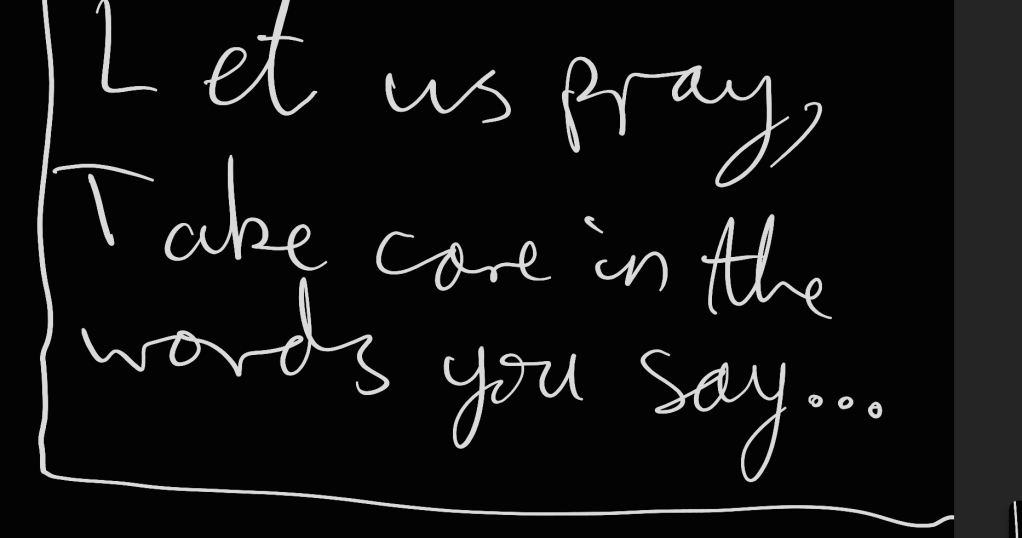 Let us pray,
Take care in the
words you say...